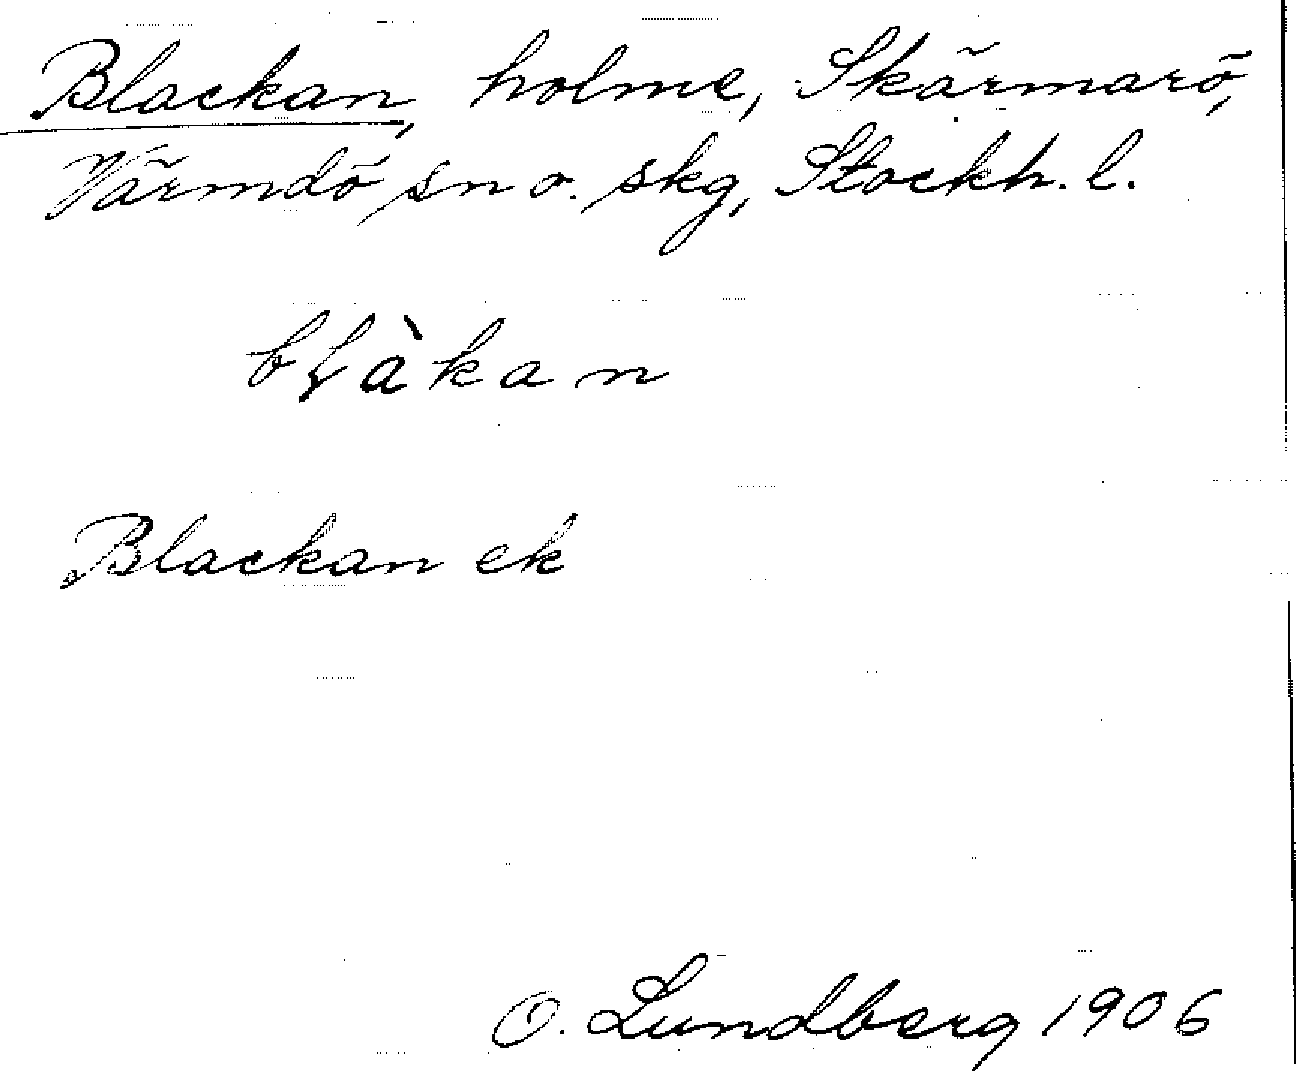 Blackan, holme, Skärmarö,
Värmdö sn o. skg, Stockh. l.
błàkan
Blackan ek
O. Lundberg 1906